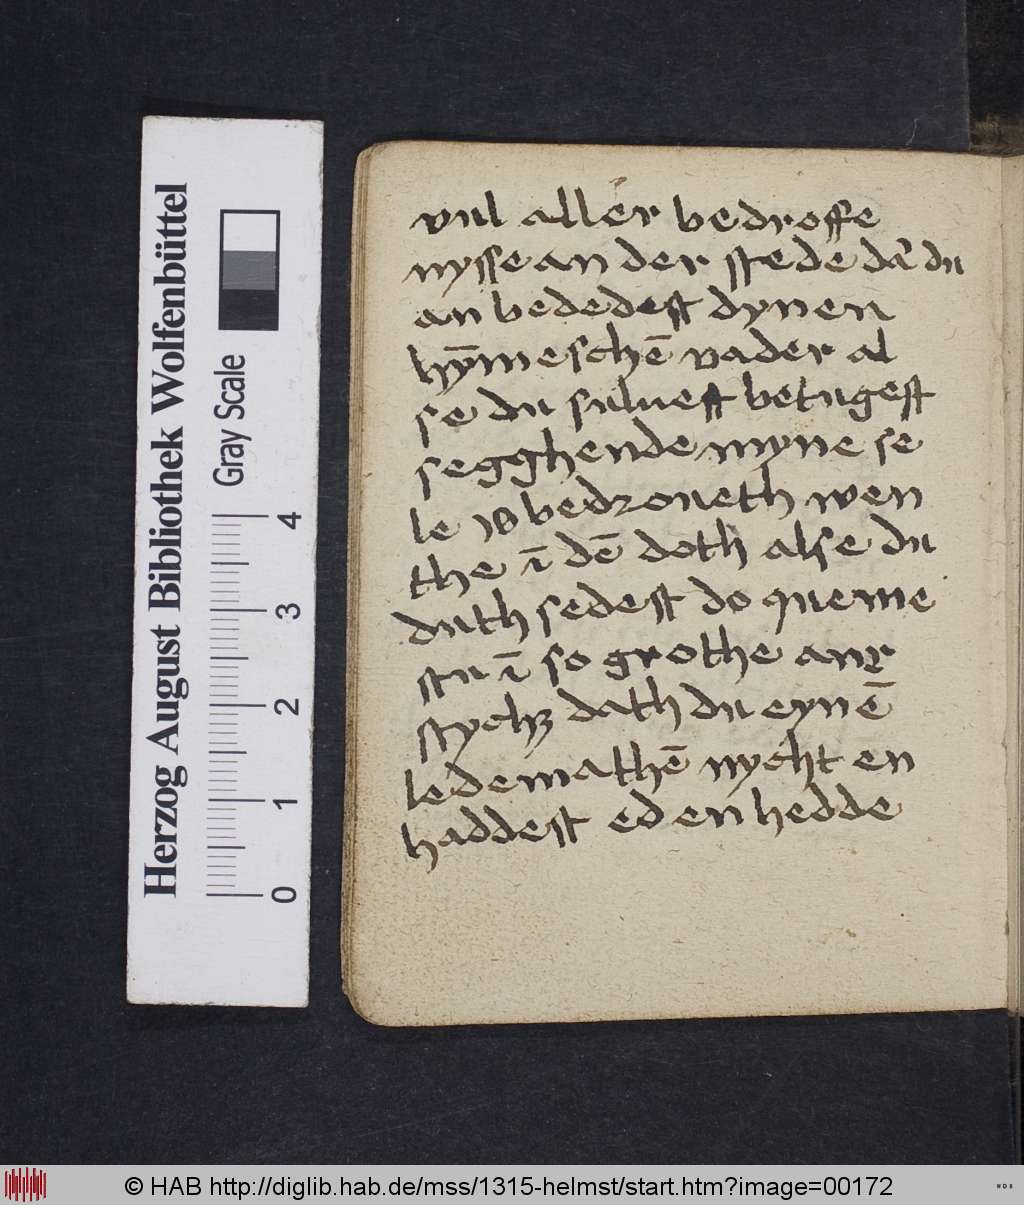 vul aller bedroffe
nysse an der stede da᷑ du
an bededest dynen
hȳmeschē vader al
se du suluest betugest
segghende myne se
le is bedroueth wen
the ī dē doth alse du
duth sedest do queme
stu ī so grothe anx
stychꝫ dath du eynē
ledemathē nycht en
haddest ed en hedde
Herzog August Bibliothek Wolfenbüttel
Gray Scale
0 1 2 3 4
© HAB http://diglib.hab.de/mss/1315-helmst/start.htm?image=00172